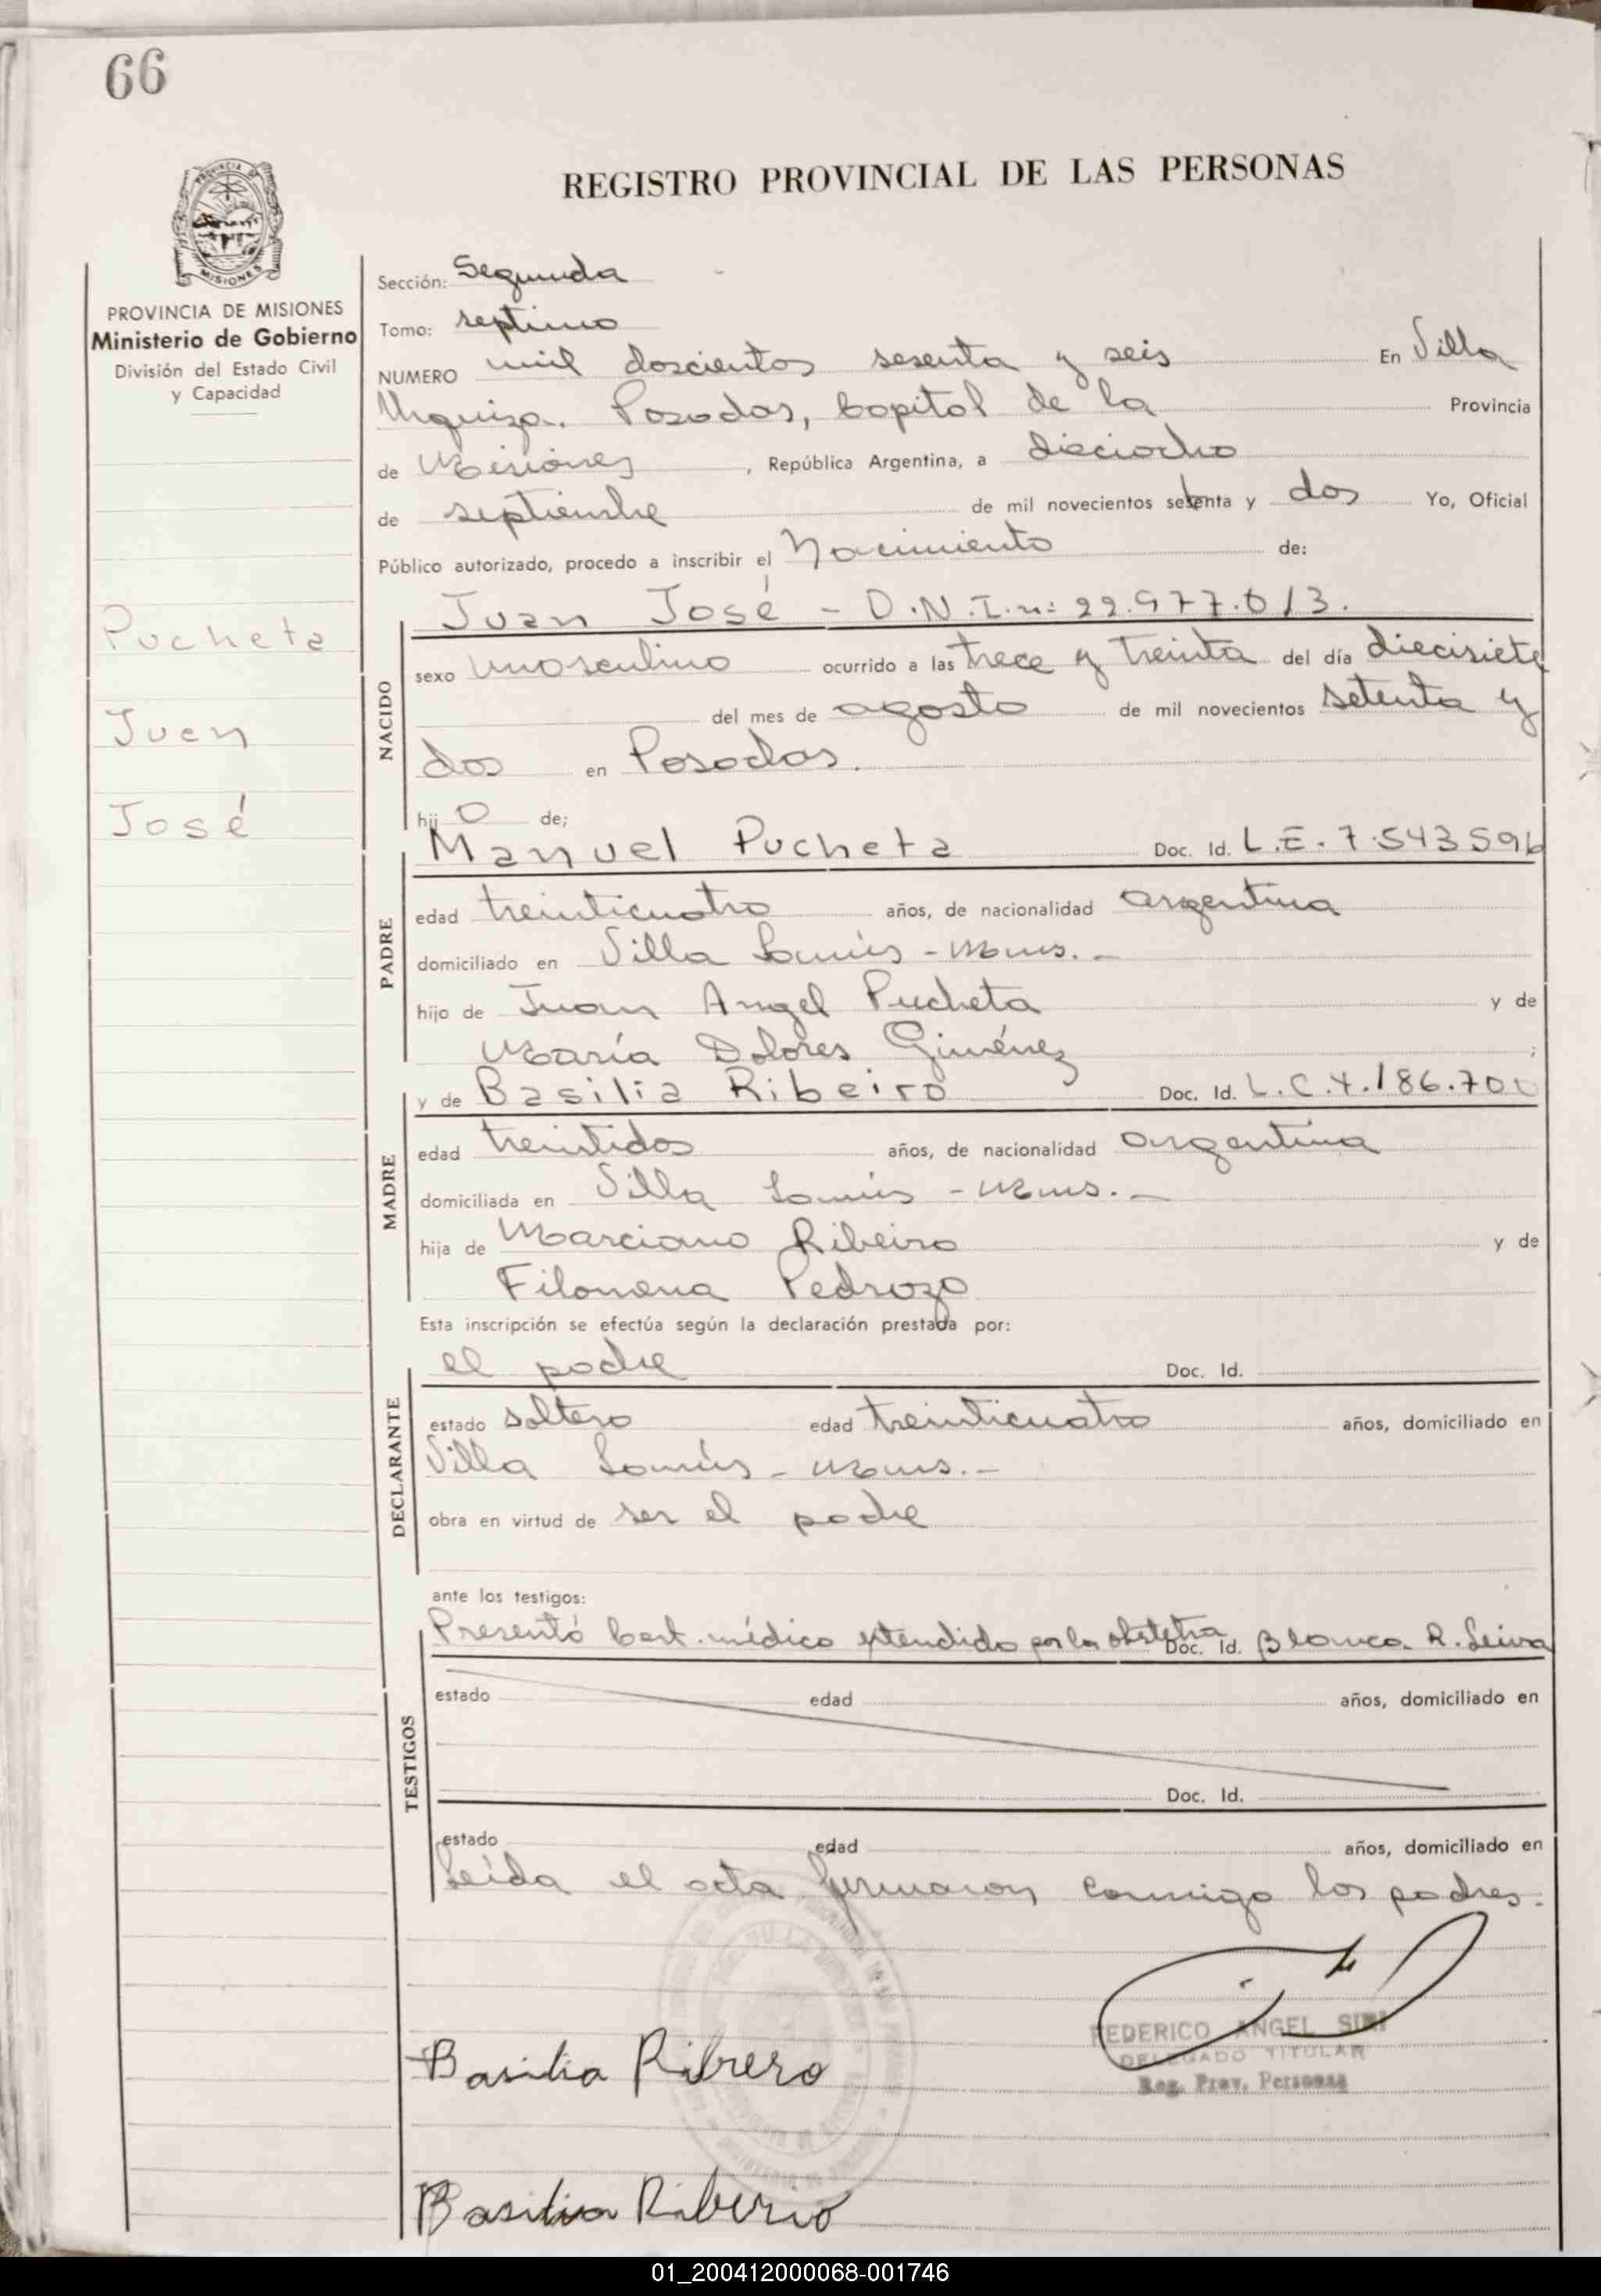 66
REGISTRO PROVINCIAL DE LAS PERSONAS
MISIONES
PROVINCIA DE MISIONES
Ministerio de Gobierno
División del Estado Civil
y Capacidad
Pucheta
Juan
José
Sección: Segunda
Tomo: septimo
NUMERO mil doscientos sesenta y seis En Villa
Urquiza. Posadas, Capital de la Provincia
de Misiones, República Argentina, a dieciocho
de septiembre de mil novecientos setenta y dos Yo, Oficial
Público autorizado, procedo a inscribir el Nacimiento de:
Juan José - D.N.I. n: 22.977.013.
NACIDO
sexo masculino ocurrido a las trece y treinta del día diecisiete
del mes de agosto de mil novecientos setenta y
dos en Posadas.
hijo de;
Manuel Pucheta Doc. Id. L.E. 7.543596
PADRE
edad treinticuatro años, de nacionalidad argentina
domiciliado en Villa Lanús - Mnes. -
hijo de Juan Angel Pucheta y de
María Dolores Giménez ;
y de Basilia Ribeiro Doc. Id. L.C. 4.186.700
MADRE
edad treintidos años, de nacionalidad argentina
domiciliada en Villa Lanús - Mnes. -
hija de Marciano Ribeiro y de
Filomena Pedrozo
Esta inscripción se efectúa según la declaración prestada por:
el padre Doc. Id.
DECLARANTE
estado soltero edad treinticuatro años, domiciliado en
Villa Lanús - Mnes. -
obra en virtud de ser el padre
ante los testigos:
Presentó Cert. médico extendido por la obstetra Doc. Id. Blanca R. Leiva
TESTIGOS
estado edad años, domiciliado en
Doc. Id.
estado edad años, domiciliado en
Leída el acta firmaron conmigo los padres.
FEDERICO ANGEL SIRI
DELEGADO TITULAR
Reg. Prov. Personas
Basilia Ribrero
Basilia Riberio
01_200412000068-001746